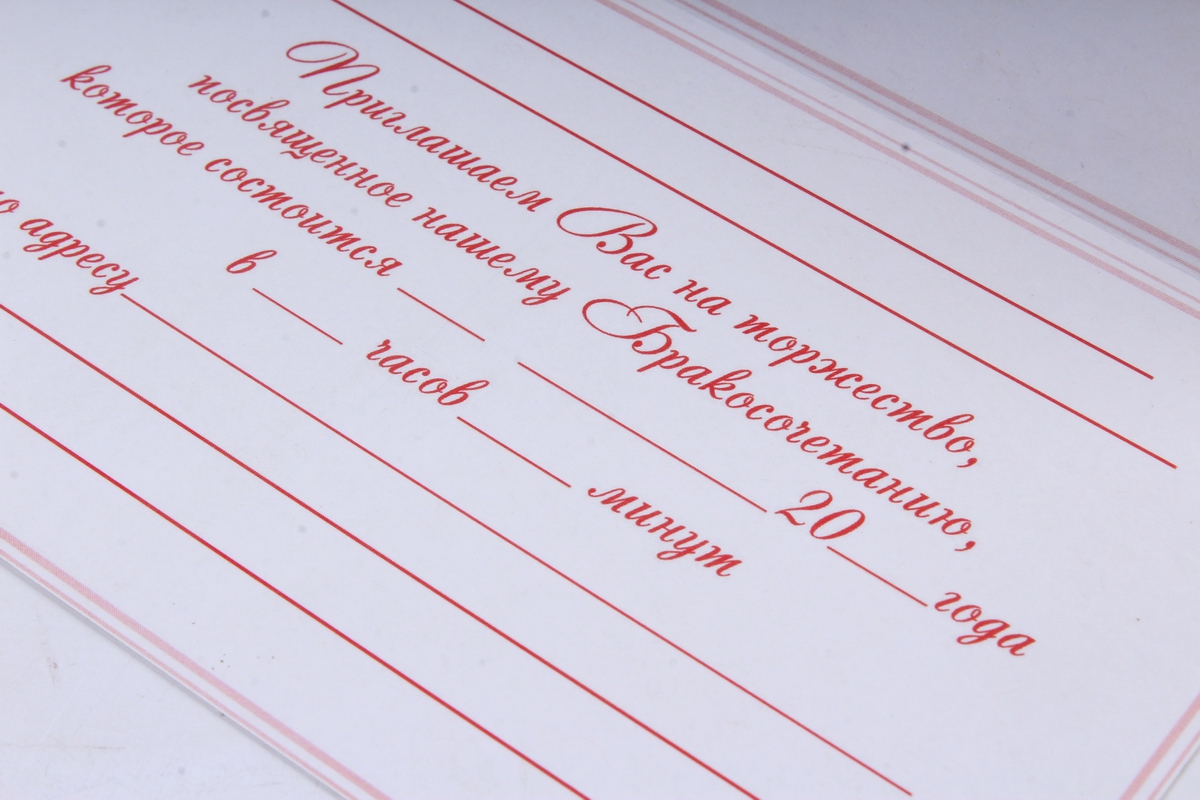 Приглашаем Вас на торжество,
посвященное нашему Бракосочетанию,
которое состоится ____ __________ 20____ года
в ____ часов____ минут
по адресу____________________